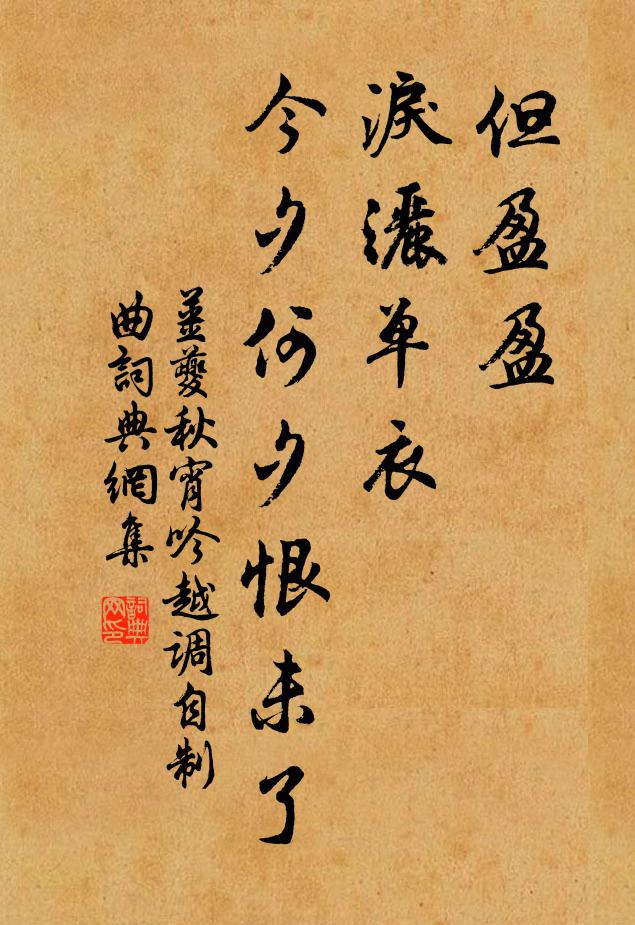 但盈盈
淚灑单衣
今夕何夕恨未了
薑夔秋宵吟越调自制
曲詞典網集
詞典
网印